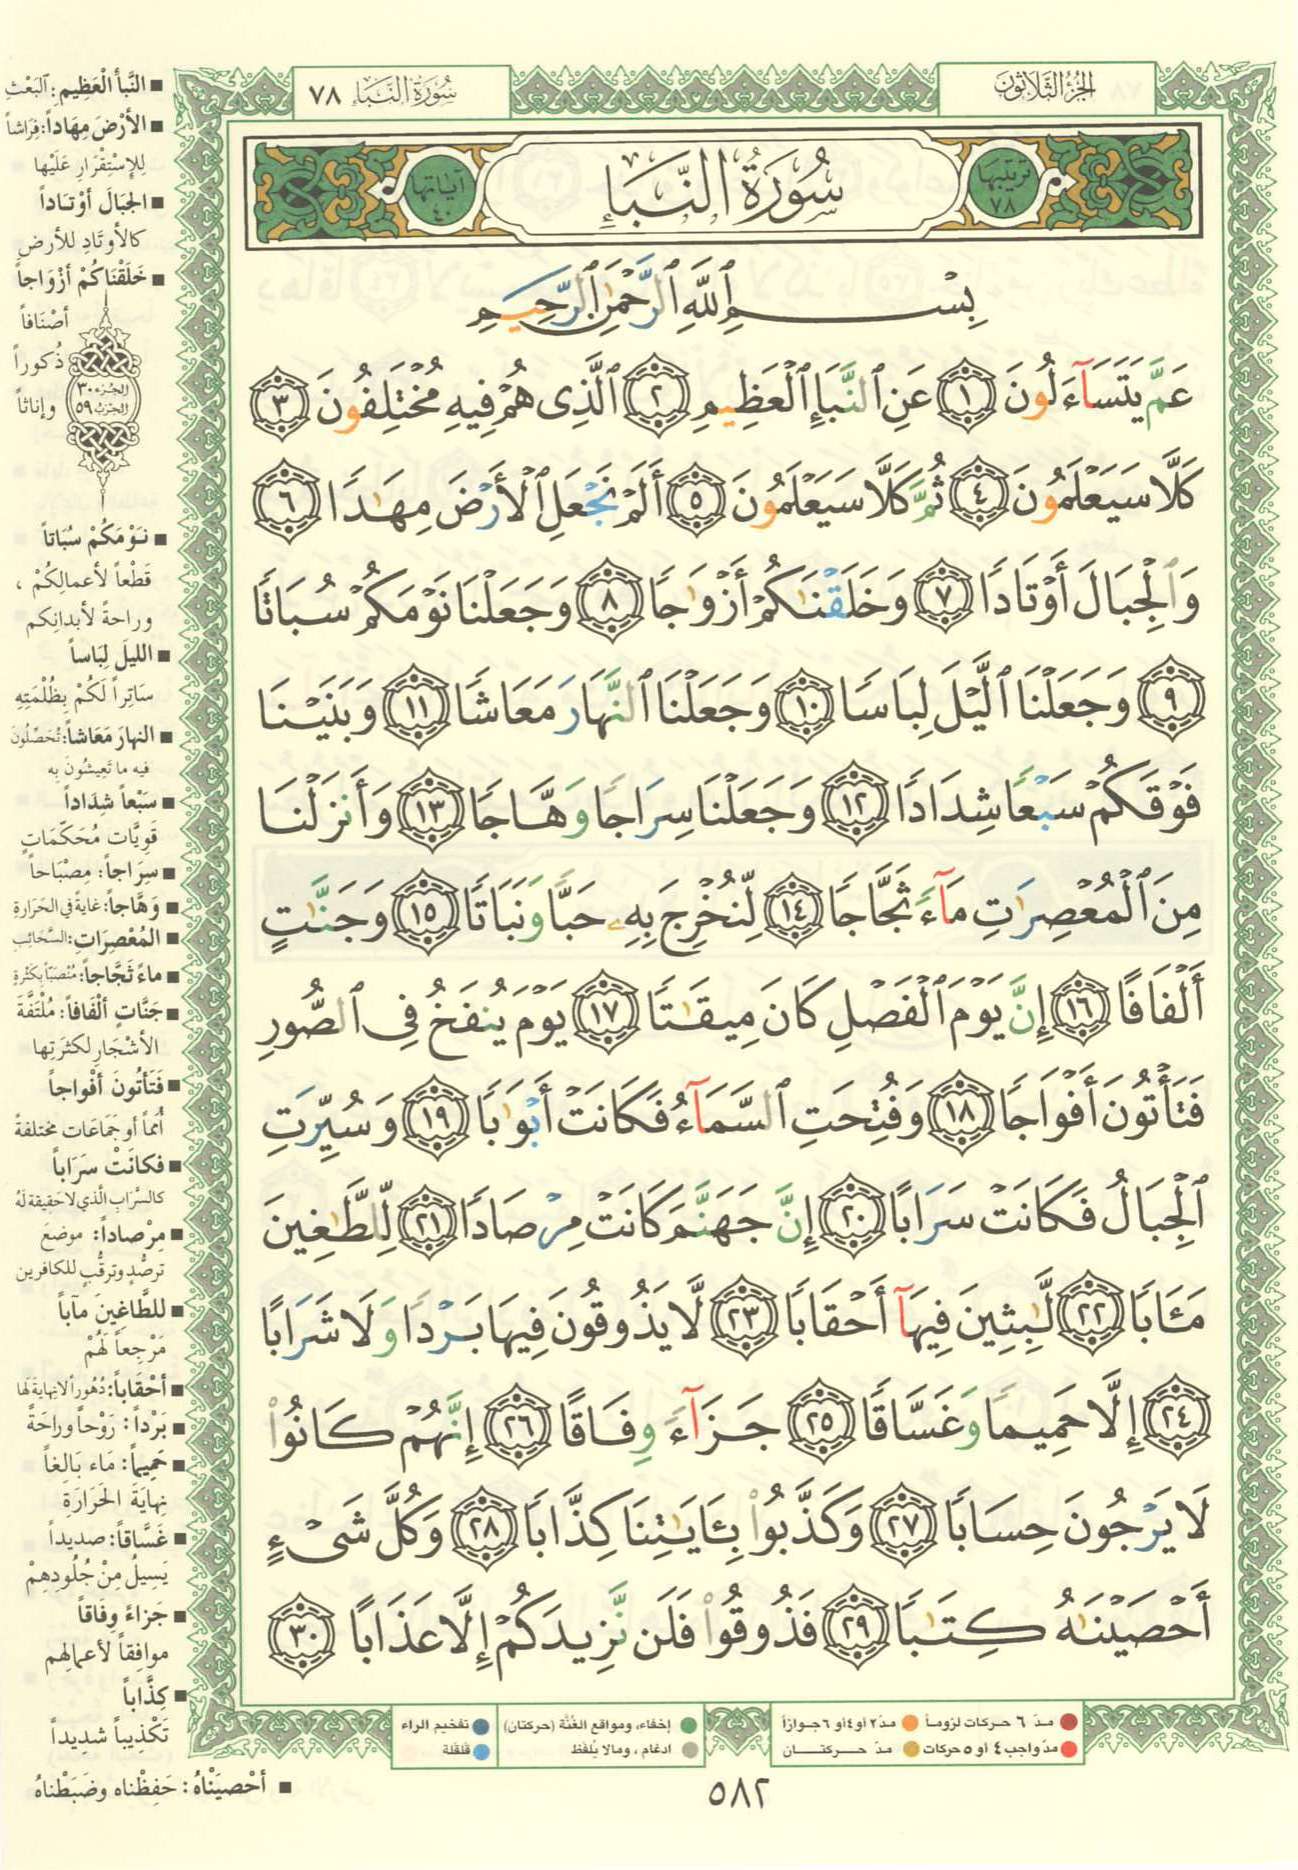 الجزء الثلاثون
سُورَةُ النَّبَإِ ٧٨
ترتيبها ٧٨
سُورَةُ النَّبَإِ
آياتها ٤٠
بِسْمِ ٱللَّهِ ٱلرَّحْمَٰنِ ٱلرَّحِيمِ
عَمَّ يَتَسَآءَلُونَ ١ عَنِ ٱلنَّبَإِ ٱلْعَظِيمِ ٢ ٱلَّذِى هُمْ فِيهِ مُخْتَلِفُونَ ٣
كَلَّا سَيَعْلَمُونَ ٤ ثُمَّ كَلَّا سَيَعْلَمُونَ ٥ أَلَمْ نَجْعَلِ ٱلْأَرْضَ مِهَٰدًا ٦
وَٱلْجِبَالَ أَوْتَادًا ٧ وَخَلَقْنَٰكُمْ أَزْوَٰجًا ٨ وَجَعَلْنَا نَوْمَكُمْ سُبَاتًا
٩ وَجَعَلْنَا ٱلَّيْلَ لِبَاسًا ١٠ وَجَعَلْنَا ٱلنَّهَارَ مَعَاشًا ١١ وَبَنَيْنَا
فَوْقَكُمْ سَبْعًا شِدَادًا ١٢ وَجَعَلْنَا سِرَاجًا وَهَّاجًا ١٣ وَأَنزَلْنَا
مِنَ ٱلْمُعْصِرَٰتِ مَآءً ثَجَّاجًا ١٤ لِّنُخْرِجَ بِهِۦ حَبًّا وَنَبَاتًا ١٥ وَجَنَّٰتٍ
أَلْفَافًا ١٦ إِنَّ يَوْمَ ٱلْفَصْلِ كَانَ مِيقَٰتًا ١٧ يَوْمَ يُنفَخُ فِى ٱلصُّورِ
فَتَأْتُونَ أَفْوَاجًا ١٨ وَفُتِحَتِ ٱلسَّمَآءُ فَكَانَتْ أَبْوَٰبًا ١٩ وَسُيِّرَتِ
ٱلْجِبَالُ فَكَانَتْ سَرَابًا ٢٠ إِنَّ جَهَنَّمَ كَانَتْ مِرْصَادًا ٢١ لِّلطَّٰغِينَ
مَـَٔابًا ٢٢ لَّٰبِثِينَ فِيهَآ أَحْقَابًا ٢٣ لَّا يَذُوقُونَ فِيهَا بَرْدًا وَلَا شَرَابًا
٢٤ إِلَّا حَمِيمًا وَغَسَّاقًا ٢٥ جَزَآءً وِفَاقًا ٢٦ إِنَّهُمْ كَانُوا۟
لَا يَرْجُونَ حِسَابًا ٢٧ وَكَذَّبُوا۟ بِـَٔايَٰتِنَا كِذَّابًا ٢٨ وَكُلَّ شَىْءٍ
أَحْصَيْنَٰهُ كِتَٰبًا ٢٩ فَذُوقُوا۟ فَلَن نَّزِيدَكُمْ إِلَّا عَذَابًا ٣٠
■ النَّبأ الْعَظِيم: البَعْث
■ الأرْضَ مِهَاداً: فِرَاشاً
لِلإسْتِقْرَارِ عَلَيْها
■ الجبَالَ أوْتَاداً
كالأوتَادِ للأرض
■ خَلَقْنَاكُمْ أزْوَاجاً
أصْنَافاً
ذُكوراً
وإناثاً
الجزء ٣٠
الحزب ٥٩
■ نَوْمَكُمْ سُبَاتاً
قَطْعاً لأعمالِكُمْ ،
وراحةً لأبدانِكم
■ الليلَ لِبَاساً
سَاتِراً لَكُمْ بِظُلْمَتِهِ
■ النهارَ مَعَاشاً: تُحَصِّلُونَ
فيه ما تَعِيشُونَ بِه
■ سَبْعاً شِدَاداً
قَوِيَّات مُحْكَمَاتٍ
■ سِرَاجاً: مِصْبَاحاً
■ وَهَّاجاً: غايةً في الحَرَارةِ
■ المُعْصِرَاتِ: السَّحَائِبِ
■ ماءً ثَجَّاجاً: مُنْصَبّاً بِكَثْرةٍ
■ جَنَّاتٍ ألْفَافاً: مُلْتَفَّةَ
الأشْجَارِ لكثرَتِها
■ فَتَأتُونَ أفْواجاً
أُمَماً أو جَمَاعَات مختلفةً
■ فكانَتْ سَرَاباً
كالسَّرَابِ الَّذي لا حَقيقة لَهُ
■ مِرْصاداً: موضعَ
تَرصُّدٍ وترقُّبٍ للكافرين
■ للطَّاغِينَ مآباً
مَرْجِعاً لَهُمْ
■ أحْقَاباً: دُهُوراً لا نهايةَ لها
■ بَرْداً: رَوْحاً وراحَةً
■ حَمِيماً: مَاء بَالِغاً
نِهايَةَ الحَرَارَةِ
■ غَسَّاقاً: صديداً
يَسِيلُ مِنْ جُلُودِهِمْ
■ جَزاءً وِفَاقاً
موافِقاً لأعمالِهم
■ كِذَّاباً
تَكْذِيباً شدِيداً
■ أحْصيْنَاهُ: حَفِظْناه وضَبَطْناهُ
مدّ ٦ حركات لزوماً
مدّ ٢ أو ٤ أو ٦ جوازاً
مدّ واجب ٤ أو ٥ حركات
مدّ حركتان
إخفاء، ومواقع الغُنَّة (حركتان)
ادغام ، ومالا يُلفظ
تفخيم الراء
قلقلة
٥٨٢